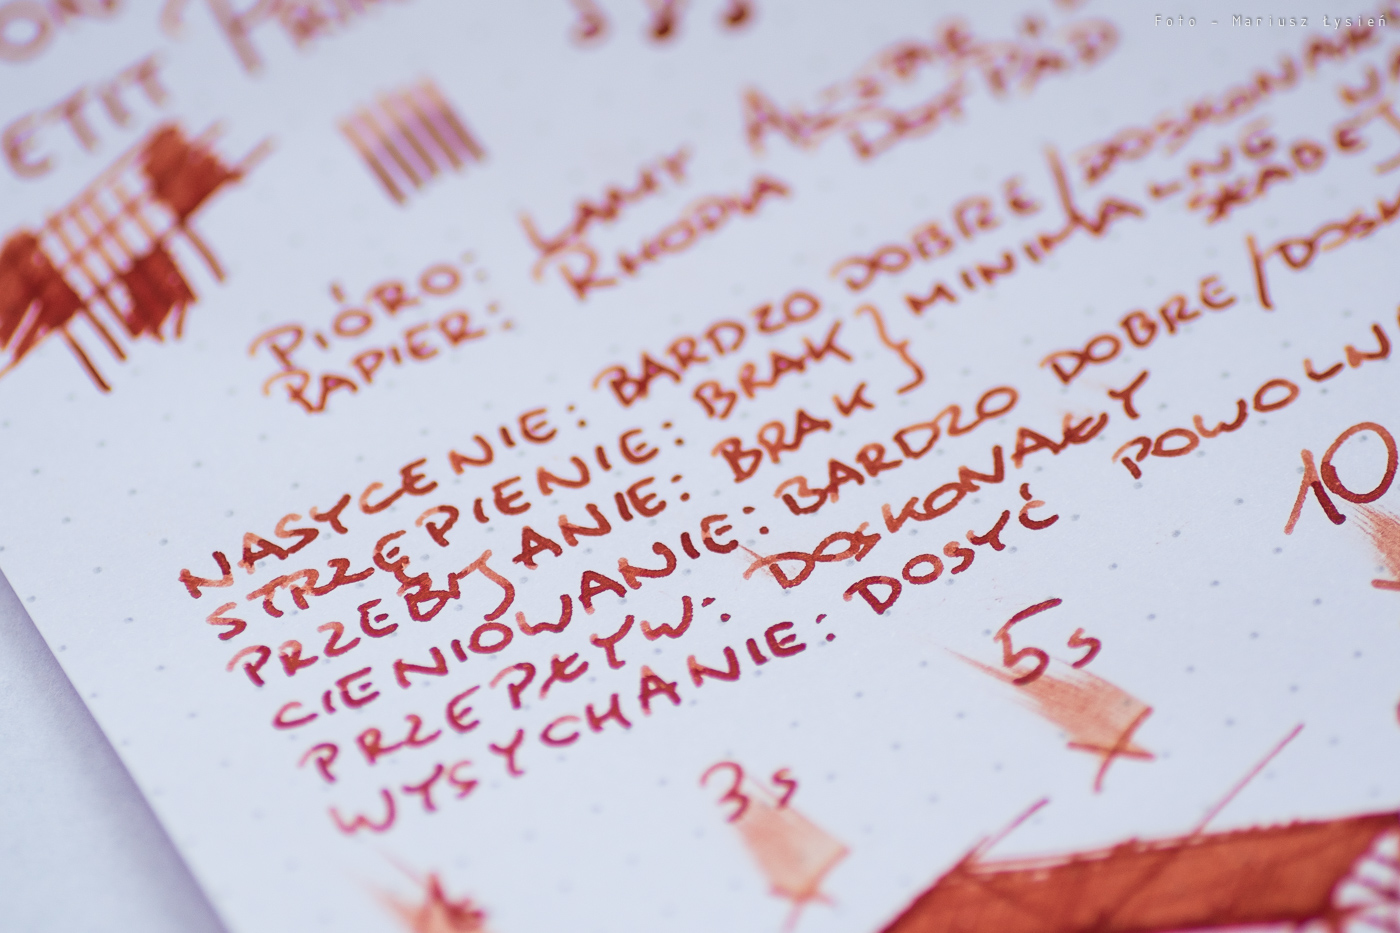 Foto - Mariusz Łysień
ETIT
PIÓRO: LAMY
PAPIER: RHODIA DOT PAD
NASYCENIE: BARDZO DOBRE /
STRZĘPIENIE: BRAK } MINIMALNE
PRZEBIJANIE: BRAK
CIENIOWANIE: BARDZO DOBRE /
PRZEPŁYW: DOSKONAŁY
WYSYCHANIE: DOSYĆ
3s 5s 10